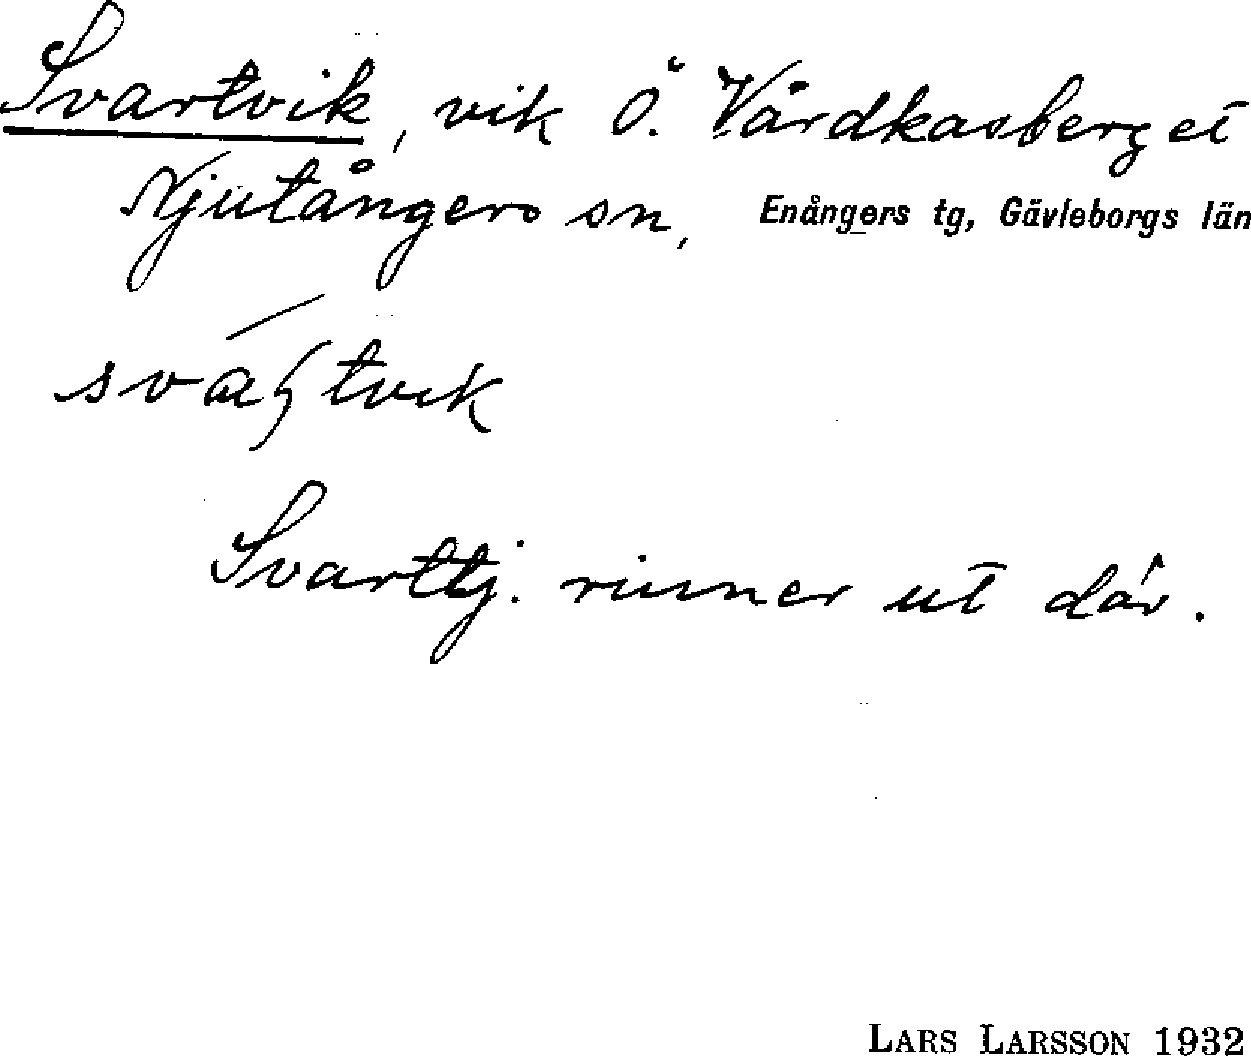 Svartvik, vik Ö. Vårdkasberget
Njutångers sn, Enångers tg, Gävleborgs län
Svarttj. rinner ut där.
LARS LARSSON 1932